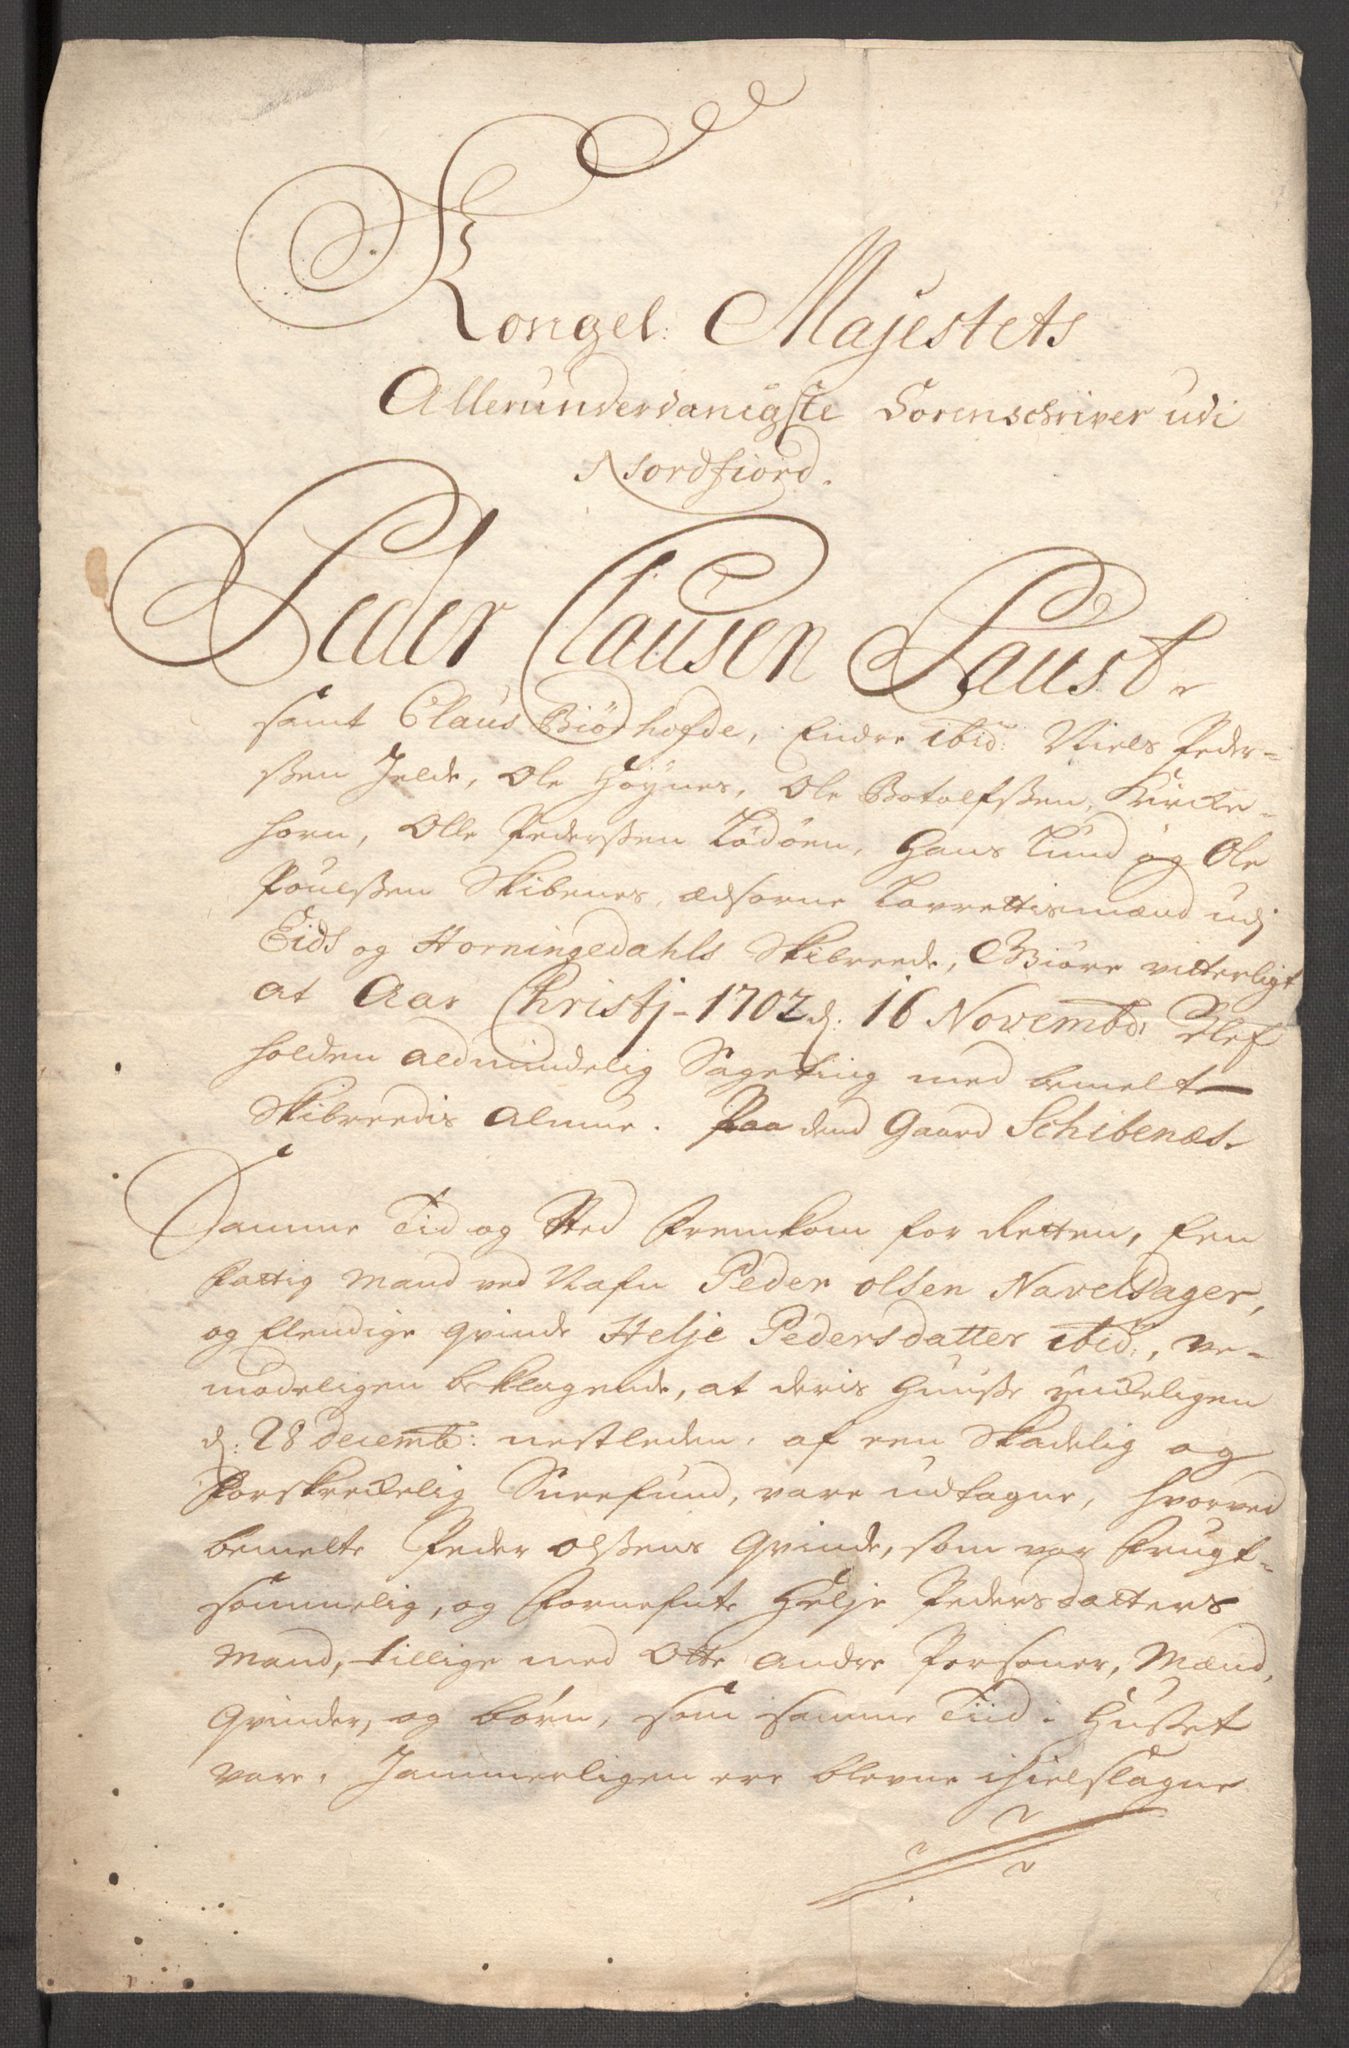 Kongel: Majestets
Allerunderdanigste Sorenschriver udi
Nordfiord.
Peder Clausen Faust
samt Claus Biørhofde, Endre ibid: Niels Peder-
ßen Jelde, Ole Høynes, Ole Botolfßen, Kircke-
horn, Olle Pederßen Lødøen, Hans Lund og Ole
Poulßen Skibenes, edsorne Laurettismænd udj
Eids og Horningedahls Skibreede, Giøre vitterligt
at Aar Christj 1702 d: 16 Novembr: blef
holden aldmindelig Sageting med bemelte
Skibreedis Almue. Paa dend Gaard Schibenæs.
Samme Tid og Sted fremkom for Retten, Een
fattig Mand ved Nafn Peder olsen Navelsager,
og Elendige qvinde Helje Pedersdatter ibid:, ve-
modeligen beklagende, at deris Huuße ynckeligen
d: 28 decemb: nestleden, af een Skadelig og
forskreckelig Sneefund, vare udtagne, hvorved
bemelte Peder olßens qvinde, som var frugt-
sommelig, og fornefnte Helje Pedersdatters
Mand, tillige med Otte andre Personer, Mænd,
qvinder, og børn, som samme Tiid i Hußet
vare, Jammerligen ere blevne ihielslagne